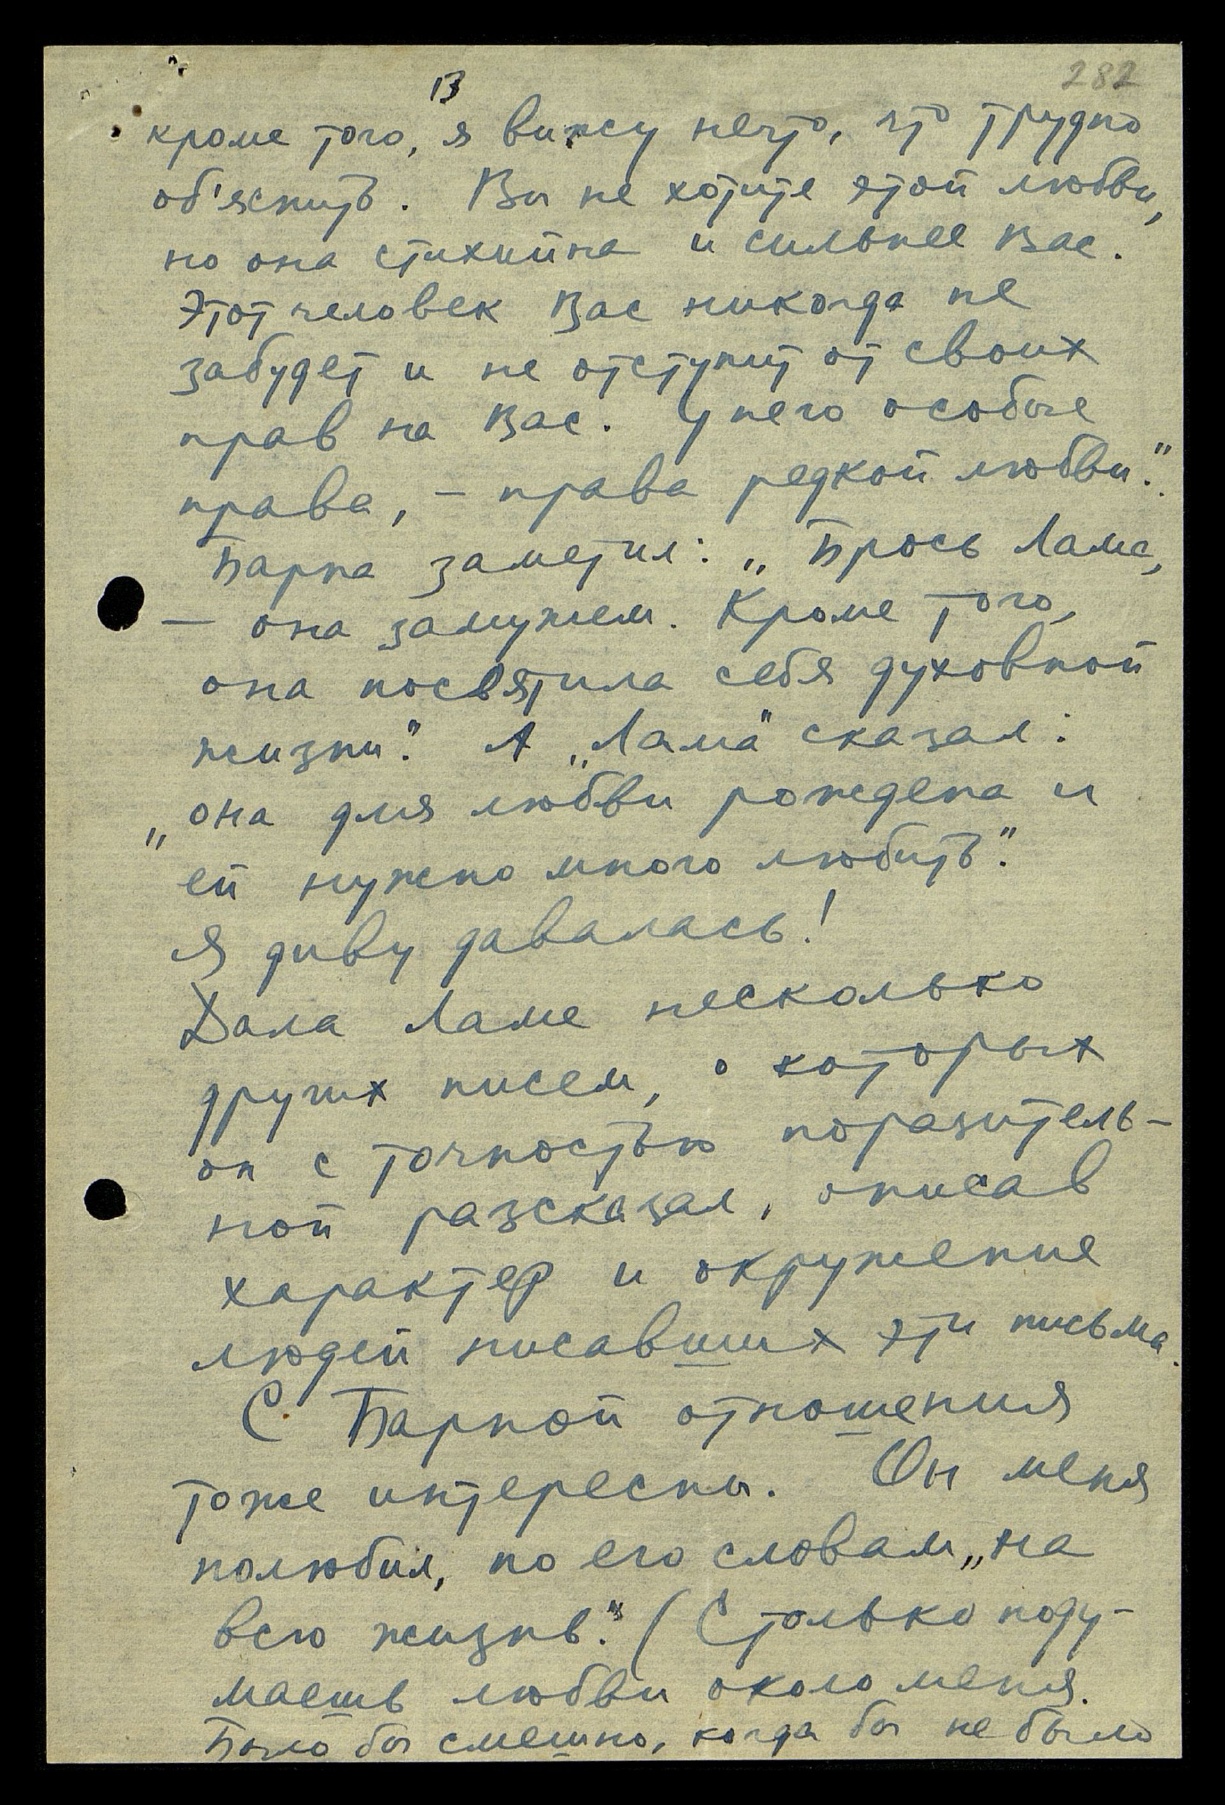 282
13
кроме того, я вижу нечто, что трудно
об'яснить. Вы не хотите этой любви,
но она стихийна и сильнее Вас.
Этот человек Вас никогда не
забудет и не отступит от своих
прав на Вас. У него особые
права, – права редкой любви".
Барка заметил: „Брось Лама,
– она замужем. Кроме того,
она посвятила себя духовной
жизни". А „Лама" сказал:
„она для любви рождена и
ей нужно много любить".
Я диву давалась!
Дала Ламе несколько
других писем, о которых
он с точностью поразитель-
ной разсказал, описав
характер и окружение
людей писавших эти письма.
С Баркой отношения
тоже интересны. Он меня
полюбил, по его словам, „на
всю жизнь". (Столько поду-
маешь любви около меня.
Было бы смешно, когда бы не было